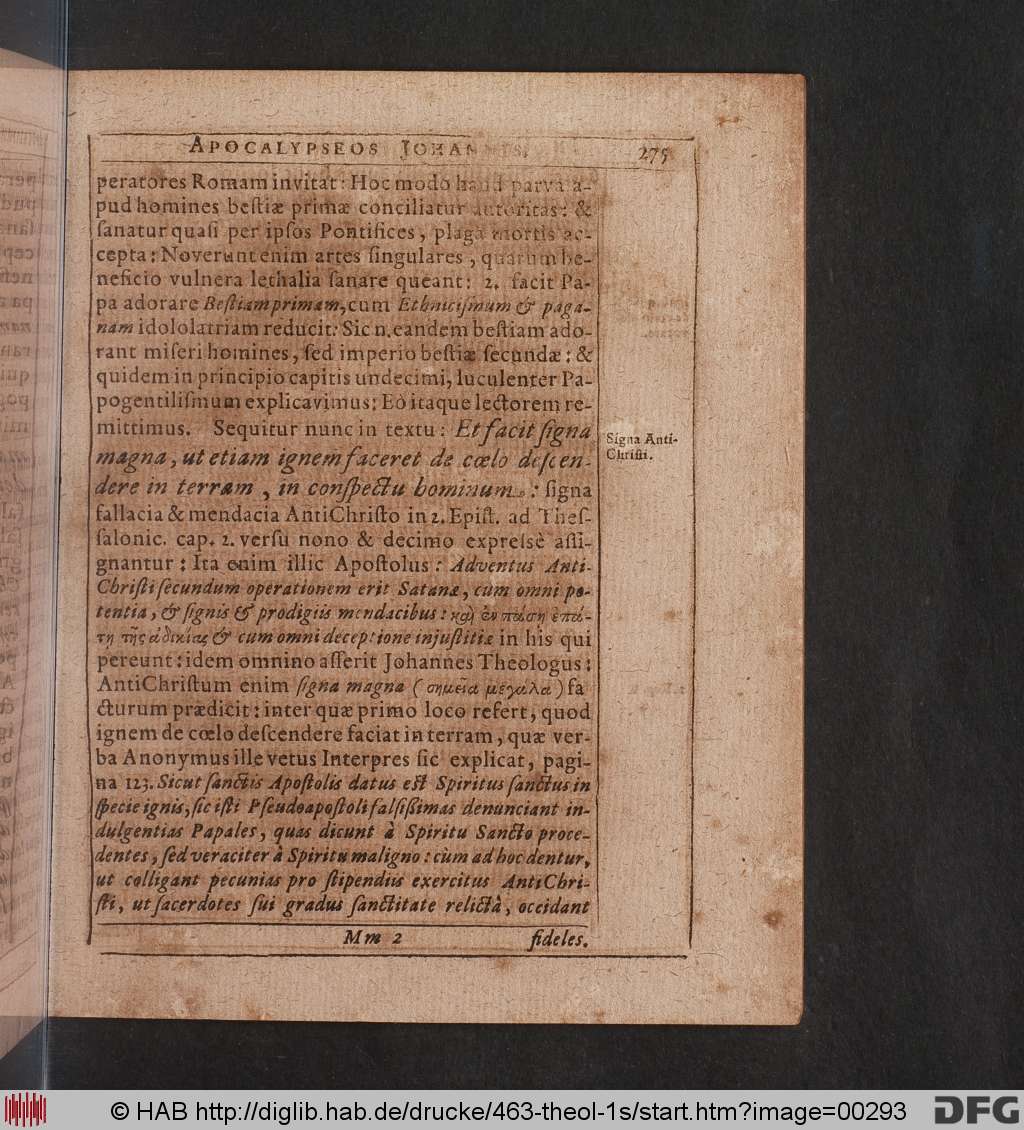 APOCALYPSEOS JOHANNIS. 275
peratores Romam invitat: Hoc modo haud parva a-
pud homines bestiæ primæ conciliatur autoritas: &
sanatur quasi per ipsos Pontifices, plaga mortis ac-
cepta: Noverunt enim artes singulares, quarum be-
neficio vulnera lethalia sanare queant: 2. facit Pa-
pa adorare Bestiam primam, cum Ethnicismum & paga-
nam idololatriam reducit: Sic n. eandem bestiam ado-
rant miseri homines, sed imperio bestiæ secundæ: &
quidem in principio capitis undecimi, luculenter Pa-
pogentilismum explicavimus: Eò itaque lectorem re-
mittimus. Sequitur nunc in textu: Et facit signa
magna, ut etiam ignem faceret de cœlo descen-
dere in terram, in conspectu hominum: signa
fallacia & mendacia AntiChristo in 2. Epist. ad Thes-
salonic. cap. 2. versu nono & decimo expressè assi-
gnantur: Ita enim illic Apostolus: Adventus Anti-
Christi secundum operationem erit Satanæ, cum omni po-
tentia, & signis & prodigiis mendacibus: καὶ ἐν πάση ἐπά-
τη τῆς ἀδικίας & cum omni deceptione injustitiæ in his qui
pereunt: idem omnino asserit Johannes Theologus:
AntiChristum enim signa magna (σημεῖα μεγάλα) fa
cturum prædicit: inter quæ primo loco refert, quod
ignem de cœlo descendere faciat in terram, quæ ver-
ba Anonymus ille vetus Interpres sic explicat, pagi-
na 123. Sicut sanctis Apostolis datus est Spiritus sanctus in
specie ignis, sic isti Pseudoapostoli falsissimas denunciant in-
dulgentias Papales, quas dicunt à Spiritu Sancto proce-
dentes, sed veraciter à Spiritu maligno: cùm ad hoc dentur,
ut colligant pecunias pro stipendiis exercitus AntiChri-
sti, ut sacerdotes sui gradus sanctitate relictà, occidant
Mm 2 fideles.
Signa Anti-
Christi.
© HAB http://diglib.hab.de/drucke/463-theol-1s/start.htm?image=00293
DFG